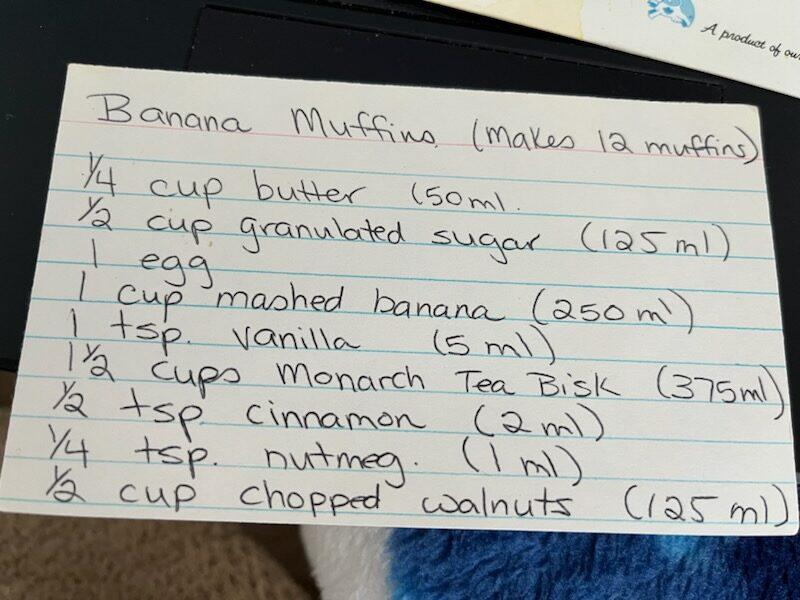 A product of our
Banana Muffins (makes 12 muffins)
1/4 cup butter (50ml.
1/2 cup granulated sugar (125 ml)
1 egg
1 cup mashed banana (250 ml)
1 tsp. vanilla (5 ml)
1 1/2 cups Monarch Tea Bisk (375ml)
1/2 tsp cinnamon (2 ml)
1/4 tsp. nutmeg. (1 ml)
1/2 cup chopped walnuts (125 ml)